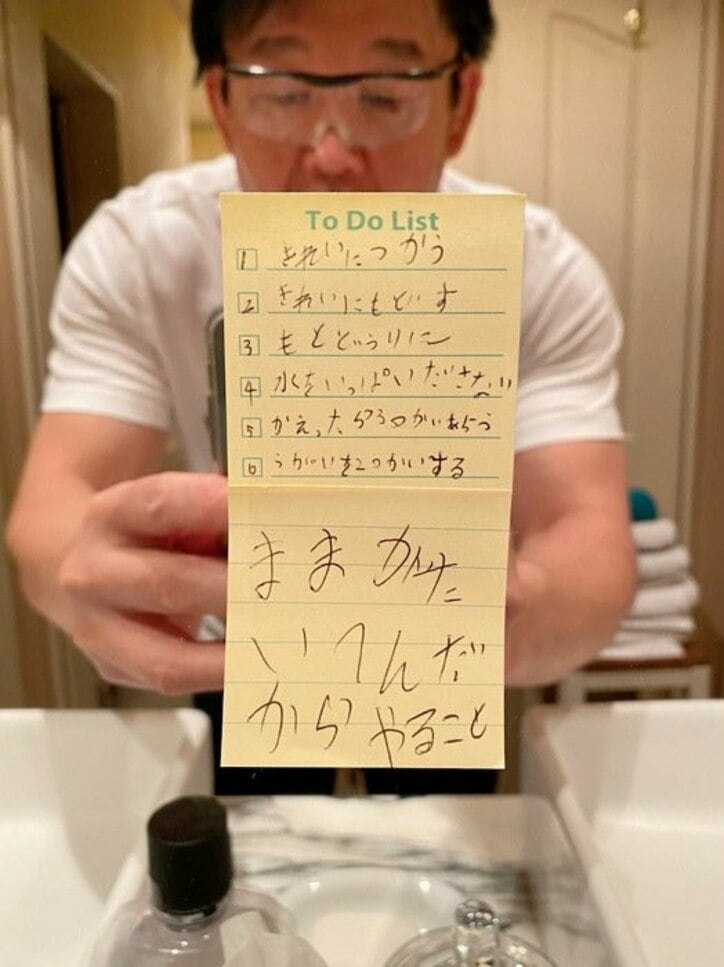 To Do List
1 きれいにつかう
2 きれいにもどす
3 もとどうりに
4 水をいっぱいださない
5 かえったら3つかいあらう
6 うがいを2つかいする
まま
いてんだ
からやること